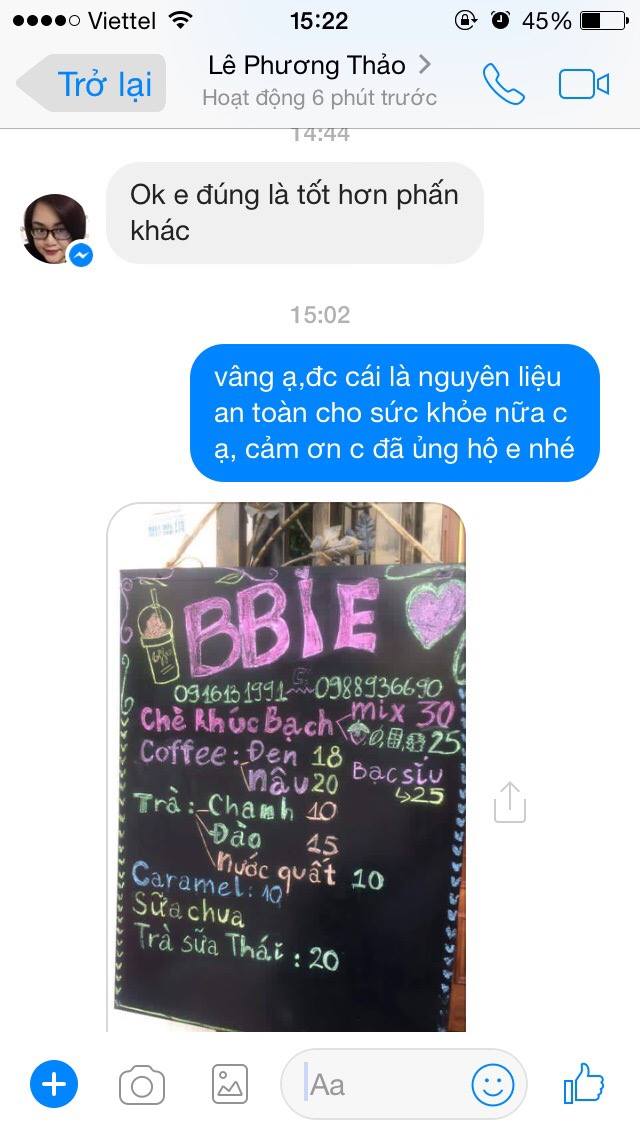 Viettel 15:22 45%
Trở lại
Lê Phương Thảo
Hoạt động 6 phút trước
14:44
Ok e đúng là tốt hơn phấn
khác
15:02
vâng ạ,đc cái là nguyên liệu
an toàn cho sức khỏe nữa c
ạ, cảm ơn c đã ủng hộ e nhé
BBIE
0916131991 0988936690
Chè Khúc Bạch mix 30
25
Coffee: Đen 18
Nâu 20
Bạc sỉu
25
Trà: Chanh 10
Đào 15
Nước quất 10
Caramel: 10
Sữa chua
Trà sữa Thái: 20
Aa